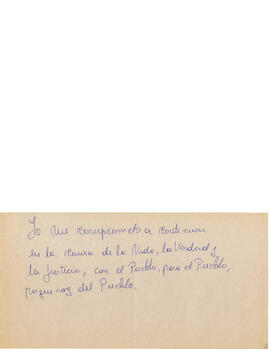 Yo me comprometo a continuar
en la causa de la Vida, la Verdad y
la Justicia, con el Pueblo, para el Pueblo,
porque soy del Pueblo.